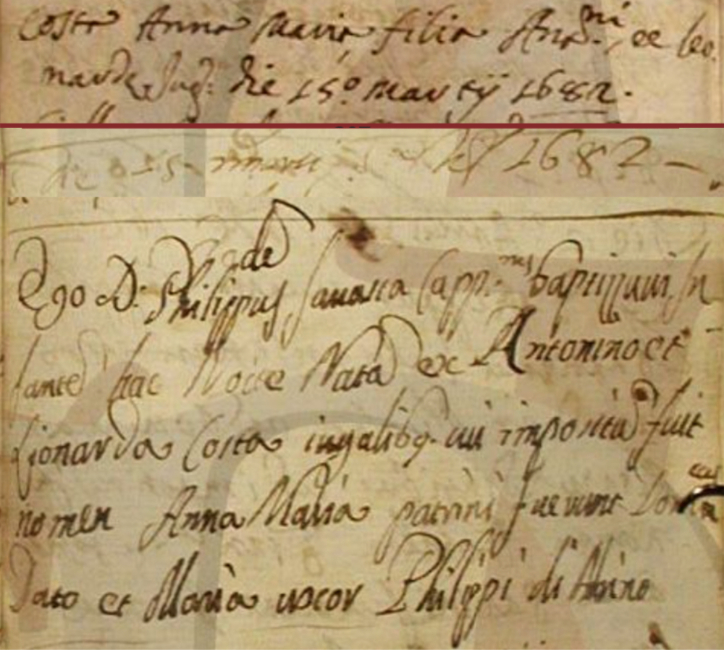 Costa Anna Maria filia Ant.ni et Leo-
narda Jug: die 15.º martij 1682.
die 15 martij 1682
Ego D. Philippus de Sauasta Capp.nus baptizzaui In
fante hac Nocte Nata ex Antonino et
Lionarda Costa iugalibq. cui imposita fuit
nomen Anna Maria patrini fuerunt
Dato et Maria uxor Philippi di